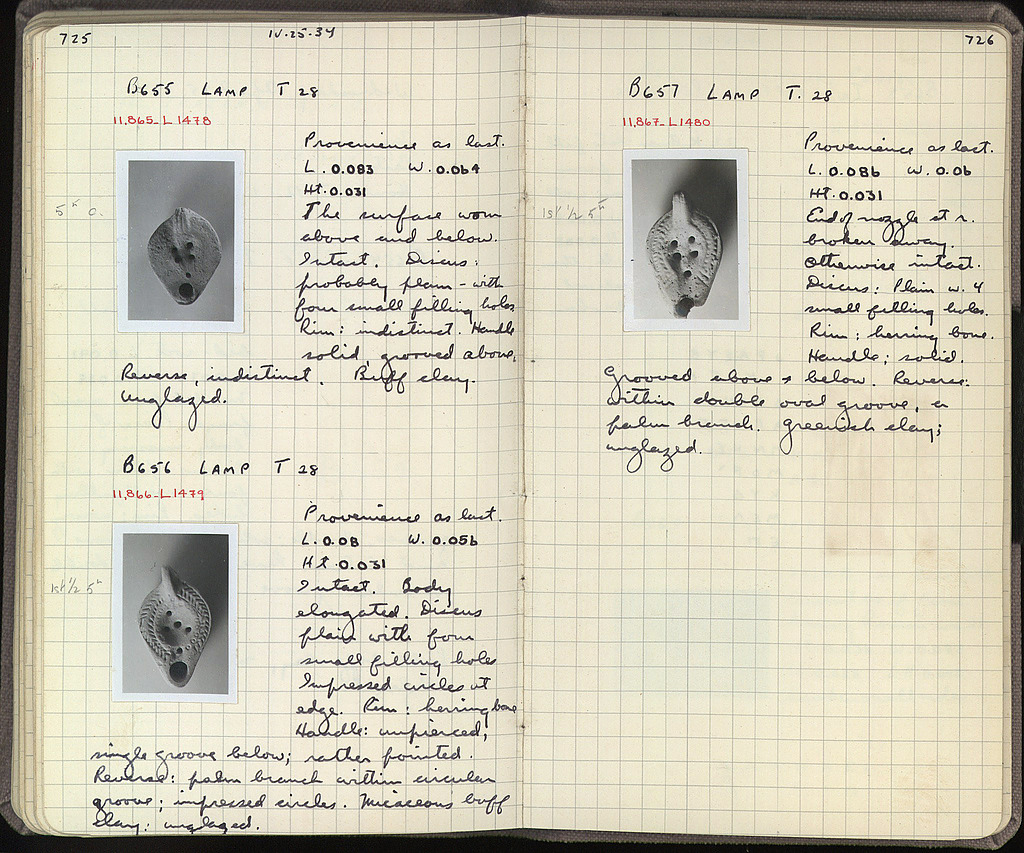 725
IV-25-34
B655 LAMP T 28
11,865-L1478
5th C.
Provenience as last.
L. 0.083 W. 0.064
Ht. 0.031
The surface worn
above and below.
Intact. Discus:
probably plain - with
four small filling holes.
Rim: indistinct. Handle
solid, grooved above.
Reverse, indistinct. Buff clay.
Unglazed.
B656 LAMP T 28
11,866-L1479
1st 1/2 5th
Provenience as last.
L. 0.08 W. 0.056
Ht. 0.031
Intact. Body
elongated. Discus
plain with four
small filling holes
Impressed circles at
edge. Rim: herring bone
Handle: unpierced;
single groove below; rather pointed.
Reverse: palm branch within circular
groove; impressed circles. Micaceous buff
clay: unglazed.
726
B657 LAMP T. 28
11,867-L1480
1st 1/2 5th
Provenience as last.
L. 0.086 W. 0.06
Ht. 0.031
End of nozzle at r.
broken away.
Otherwise intact.
Discus: Plain w. 4
small filling holes.
Rim: herring bone.
Handle; solid.
Grooved above & below. Reverse:
within double oval groove, a
palm branch. Greenish clay;
unglazed.